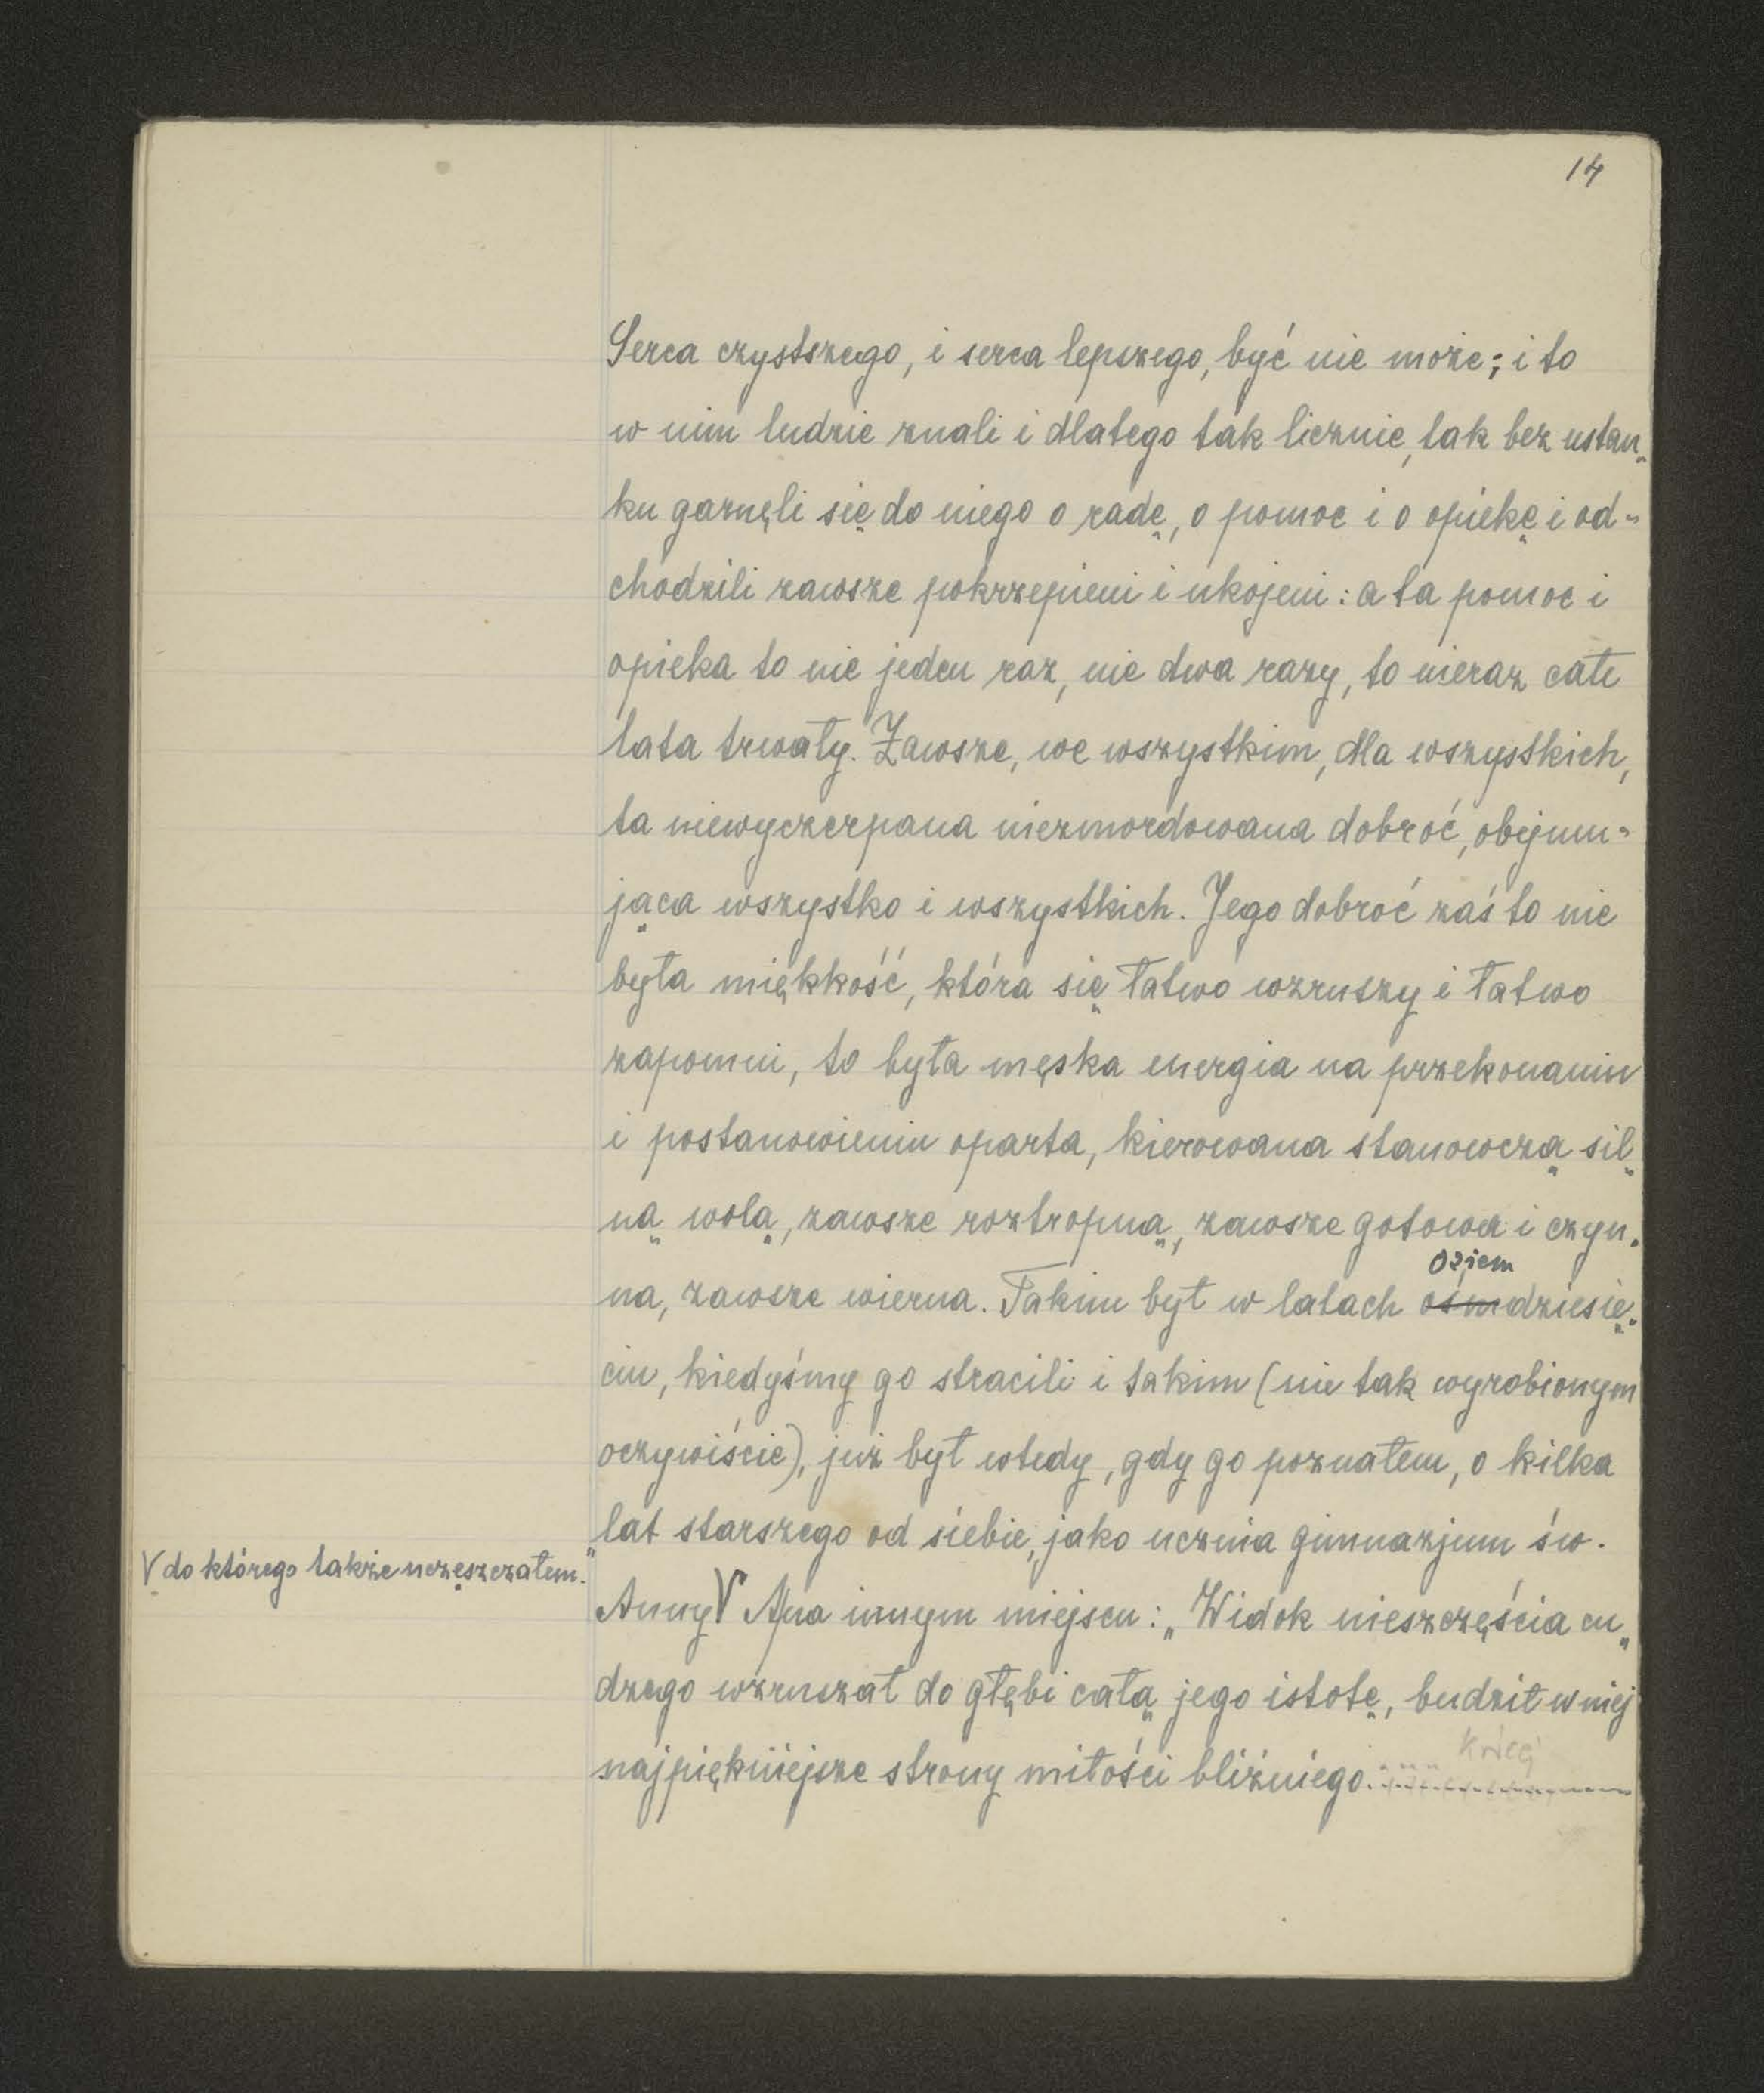 14
Serca czystszego, i serca lepszego, być nie może; i to
w nim ludzie znali i dlatego tak licznie, tak bez ustan„
ku garnęli się do niego o radę, o pomoc i o opiekę i od-
chodzili zawsze pokrzepieni i ukojeni: a ta pomoc i
opieka to nie jeden raz, nie dwa razy, to nieraz całe
lata trwały. Zawsze, we wszystkim, dla wszystkich,
ta niewyczerpana niezmordowana dobroć, obejmu-
jąca wszystko i wszystkich. Jego dobroć zaś to nie
była miękkość, która się łatwo wzruszy i łatwo
zapomni, to była męska energia na przekonaniu
i postanowieniu oparta, kierowana stanowczą sil„
ną wolą, zawsze roztropną, zawsze gotowa i czyn-
oziem
na, zawsze wierna. Takim był w latach ośmdziesię-
ciu, kiedyśmy go stracili i takim (nie tak wyrobionym
oczywiście), już był wtedy, gdy go poznałem, o kilka
lat starszego od siebie, jako ucznia gimnazjum św.
V do którego także uczęszczałem."
Anny V A na innym miejscu: „Widok nieszczęścia cu„
dzego wzruszał do głębi całą jego istotę, budził w niej
najpiękniejsze strony miłości bliźniego.